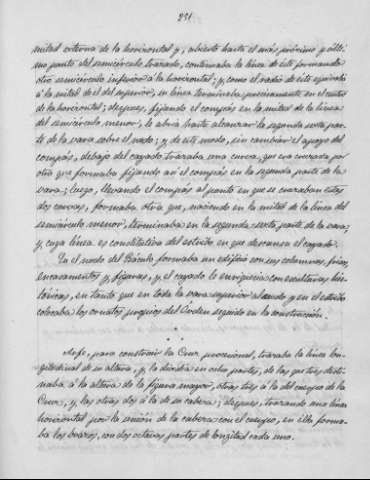 251.
mitad externa de la horizontal y, abierto hasta el más próximo y últi-
mo punto del semicírculo trazado, continuaba la línea de éste formando
otro semicírculo inferior á la horizontal; y, como el radio de éste equivalía
á la mitad de el del superior, su línea terminaba precisamente en el centro
de la horizontal; despues, fijando el compás en la mitad de la línea
del semicírculo menor, le abría hasta alcanzar la segunda sexta par-
te de la vara sobre el nudo; y de este modo, sin cambiar el apoyo del
compás, debajo del cayado trazaba una curva, que era cruzada por
otra que formaba fijando así el compás en la segunda parte de la
vara; luego, llevando el compás al punto en que se cruzaban estas
dos curvas, formaba otra que, naciendo en la mitad de la línea del
semicírculo menor, terminaba en la segunda sexta parte de la vara;
y cuya línea es constitutiva del estribo en que descansa el cayado.
En el nudo del Báculo formaba un edificio con sus columnas, frisos,
encasamentos y figuras, y el cayado le enriquecía con esculturas his-
tóricas, en tanto que en toda la vara superior al nudo y en el estribo
colocaba los ornatos propios del Orden seguido en la construcción.
Arfe, para construir la Cruz procesional, trazaba la línea lon-
gitudinal de su altura, y la dividía en ocho partes, de las que tres desti-
naba á la altura de la figura mayor, otras tres á la del cuerpo de la
Cruz, y las otras dos á la de su cabeza; despues, trazando una línea
horizontal por la unión de la cabeza con el cuerpo, en ella forma-
ba los brazos, con dos octavas partes de longitud cada uno.